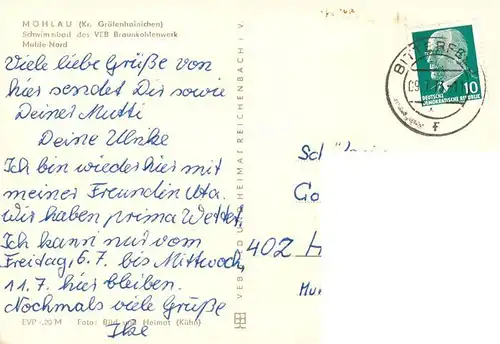 MÖHLAU (Kr. Gräfenhainichen)
Schwimmbad des VEB Braunkohlenwerk
Mulde-Nord
Viele liebe Grüße von
hier sendet Dir sowie
Deiner Mutti
Deine Ulrike
Ich bin wieder hier mit
meiner Freundin Uta.
Wir haben prima Wetter.
Ich kann nur vom
Freitag, 6.7. bis Mittwoch,
11.7. hier bleiben.
Nochmals viele Grüße
Ilse
EVP -,20 M Foto: Bild und Heimat (Kühn)
VEB BILD UND HEIMAT REICHENBACH i. V.
BITTERFELD
DEUTSCHE
DEMOKRATISCHE REPUBLIK
10
F
402 H